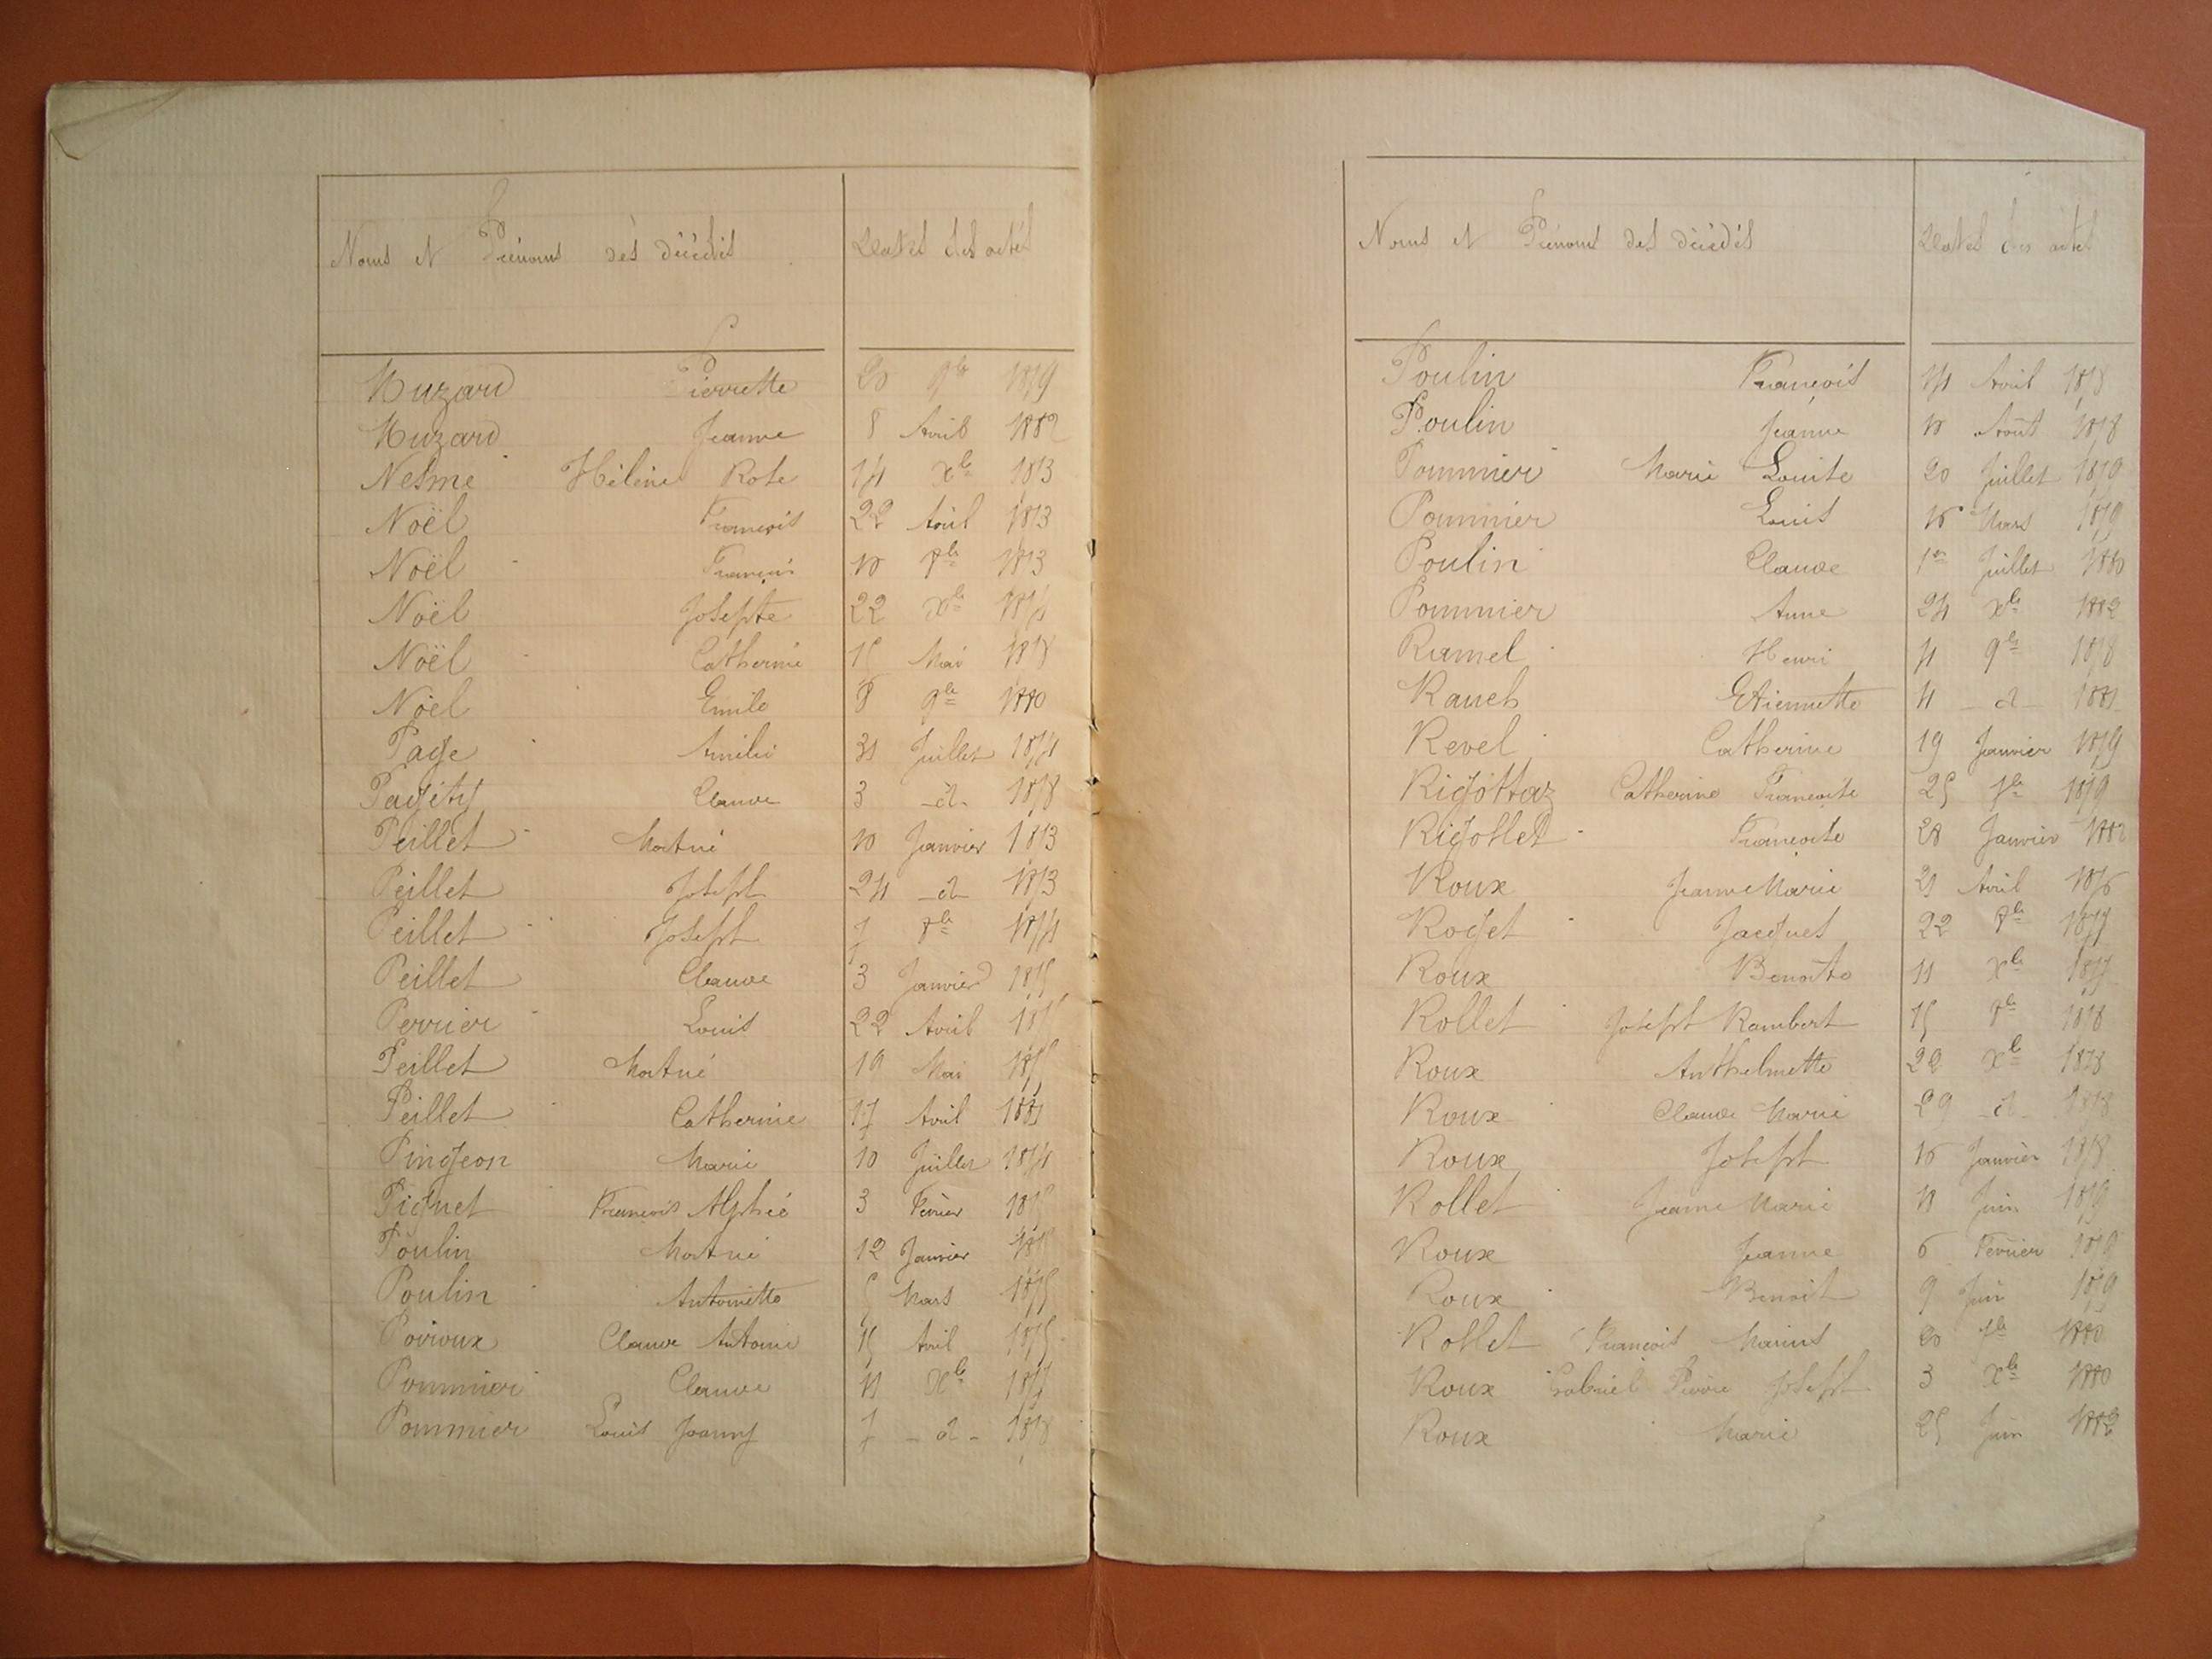 Noms et Prénoms des décédés Dates des actes
Muzard Pierrette 20 9bre 1879
Muzard Jeanne 8 Avril 1882
Nesme Hélène Rose 14 Xbre 1873
Noël François 22 1873
Noël François 10 8bre 1873
Noël Josepte 22 Xbre 1874
Noël Catherine 15 Mai 1878
Noël Emile 8 9bre 1880
Page Amélie 31 Juillet 1874
Pagéty Claude 3 -d- 1878
Peillet Mort né 10 Janvier 1873
Peillet Joseph 24 -d- 1873
Peillet Joseph 7 8bre 1874
Peillet Claude 3 Janvier 1875
Perrier Louis 22 Avril
Peillet Mort né 19 Mai
Peillet Catherine 17 Avril 1881
Pingeon Marie 10 Juillet 1874
Piquet François Alphée 3 Février
Poulin Mort né 12 Janvier
Poulin Antoinette 5 Mars 1875
Poiroux Claude Antoine 15 Avril 1875
Pommier Claude 11 Xbre 1877
Pommier Louis Joanny 7 -d- 1878
Noms et Prénoms des décédés Dates des actes
Poulin François Avril 1878
Poulin Jeanne 10 Août 1878
Pommier Marie Louise 20 Juillet 1879
Pommier Louis 16 Mars 1879
Poulin Claude 1er Juillet 1880
Pommier Anne 24 Xbre 1882
Ramel Henri 9bre 1878
Rauch Etiennette 11 -d- 1881
Revel Catherine 19 Janvier 1879
Rigottaz Catherine Françoise 25 7bre 1879
Rigollet Françoise 28 Janvier 1882
Roux Jeanne Marie 21 Avril 1876
Roget Jacques 22 8bre 1877
Roux Benoîte 11 Xbre 1877
Rollet Joseph Rambert 15 8bre 1878
Roux Anthelmette 22 Xbre 1878
Roux Claude Marie 29 -d- 1878
Roux Joseph 16 Janvier 1878
Rollet Jeanne Marie 11 Juin 1879
Roux Jeanne 6 Février 1879
Roux Benoit 9 Juin 1879
Rollet François Marius 20 7bre 1880
Roux Gabriel Pierre Joseph 3 Xbre 1880
Roux Marie 25 Juin 1882